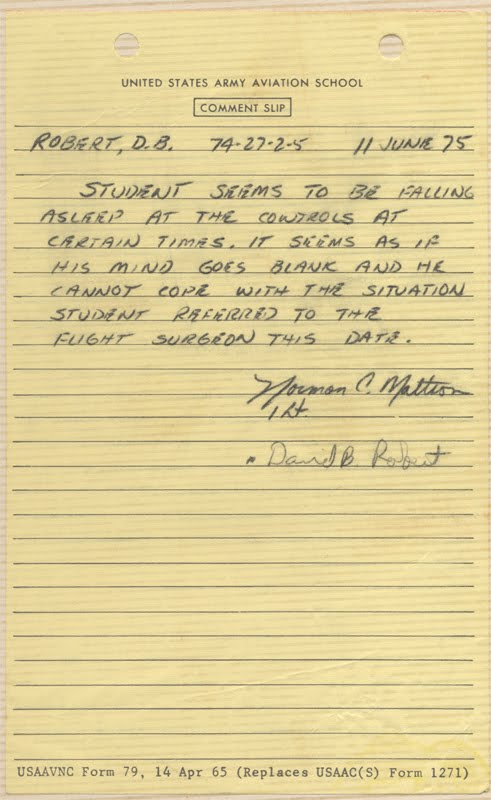 UNITED STATES ARMY AVIATION SCHOOL
COMMENT SLIP
ROBERT, D.B. 74-27-2-5 11 JUNE 75
STUDENT SEEMS TO BE FALLING
ASLEEP AT THE CONTROLS AT
CERTAIN TIMES. IT SEEMS AS IF
HIS MIND GOES BLANK AND HE
CANNOT COPE WITH THE SITUATION
STUDENT REFERRED TO THE
FLIGHT SURGEON THIS DATE.
Norman C. Mattson
1 Lt.
David B. Robert
USAAVNC Form 79, 14 Apr 65 (Replaces USAAC(S) Form 1271)